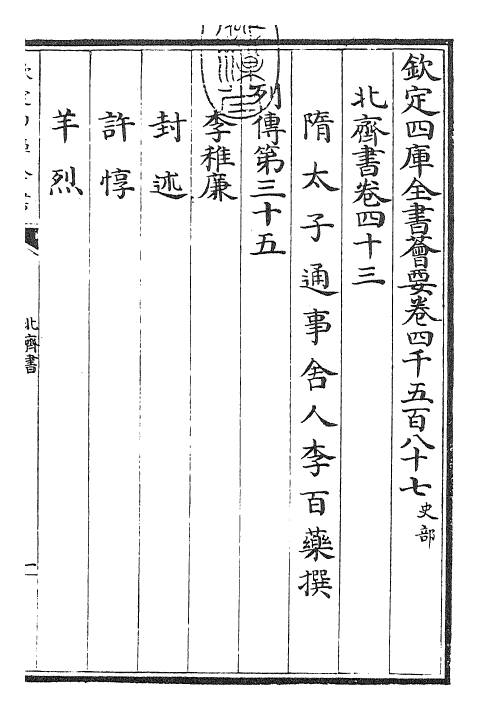 欽定四庫全書薈要卷四千五百八十七 史部
北齊書卷四十三
隋太子通事舍人李百藥撰
列傳第三十五
李稚廉
封述
許惇
羊烈
北齊書
一